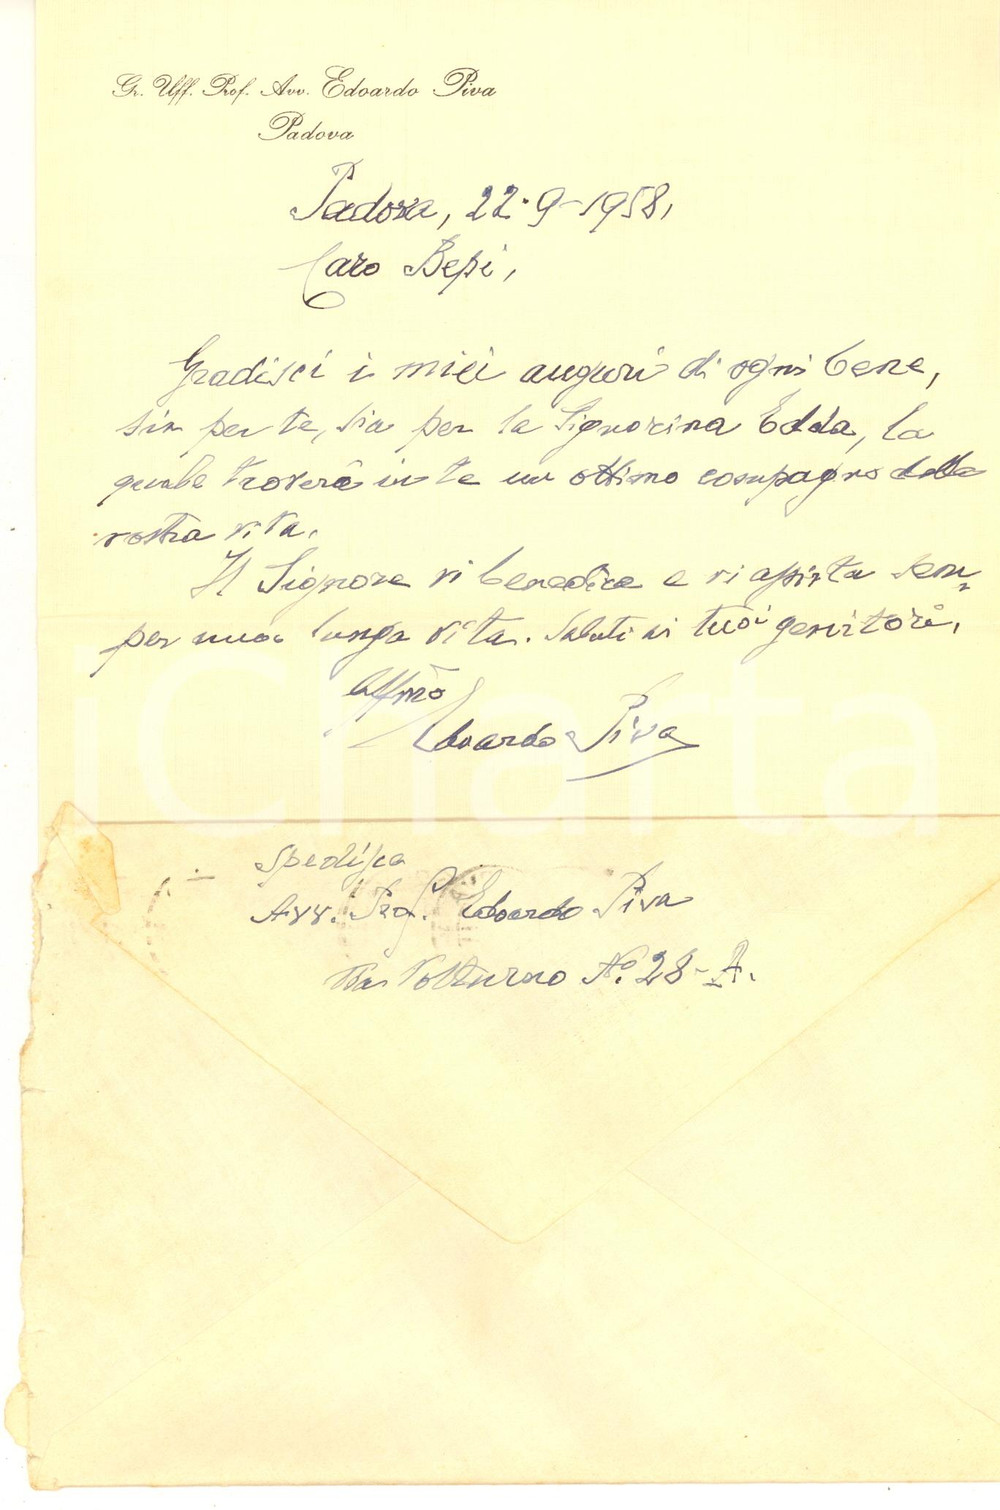 Gr. Uff. Prof. Avv. Edoardo Piva
Padova
Padova, 22-9-1958,
Caro Bepi,
Gradisci i miei auguri di ogni bene,
sia per te, sia per la Signorina Edda, la
quale troverà in te un ottimo compagno della
vostra vita.
Il Signore vi benedica e vi assista sem
per una lunga vita. Saluti ai tuoi genitori.
Affmo
Edoardo Piva
iCharta
Spedisce
Avv. Prof. Edoardo Piva
Via Volturno No. 28-A.